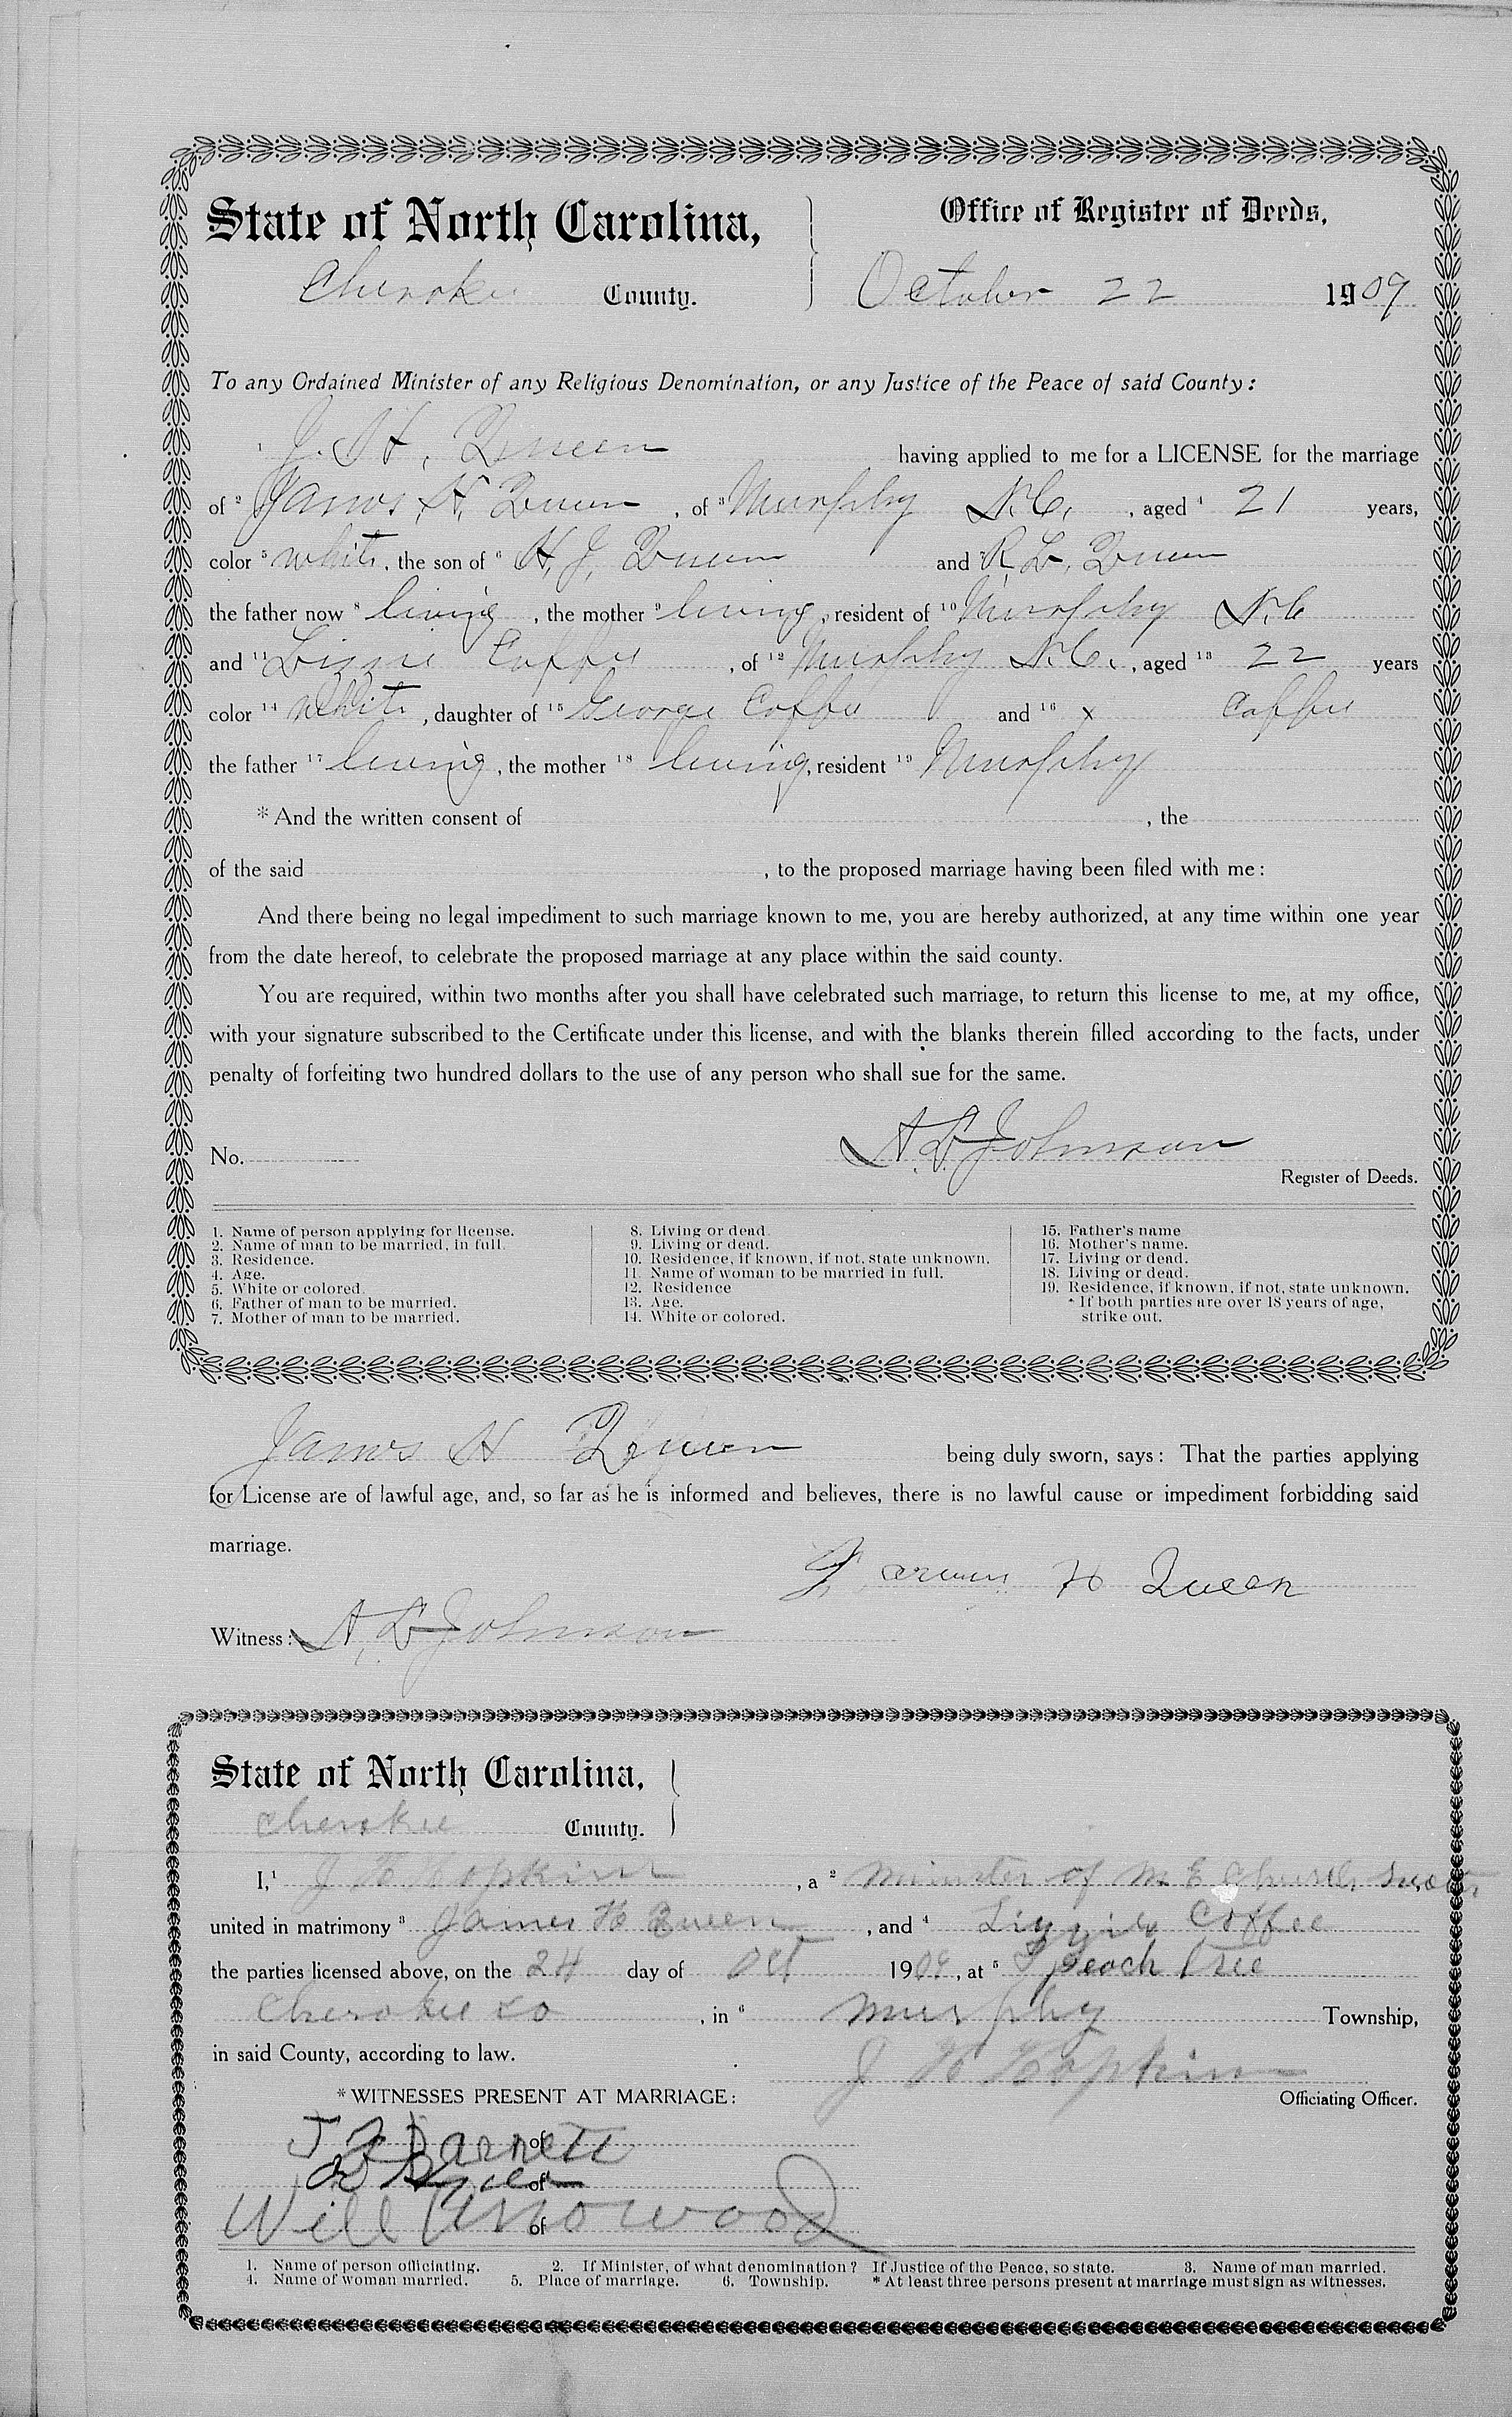 State of North Carolina, Office of Register of Deeds,
Cherokee County. October 22 1909
To any Ordained Minister of any Religious Denomination, or any Justice of the Peace of said County:
J. H. Queen having applied to me for a LICENSE for the marriage
of 2 James H. Queen , of 3 Murphy N.C. , aged 4 21 years,
color 5 white , the son of 6 H. J. Queen and 7 R. L. Queen
the father now 8 living , the mother 9 living , resident of 10 Murphy N.C
and 11 Lizzie Coffee , of 12 Murphy N.C. , aged 13 22 years
color 14 White , daughter of 15 George Coffee and 16 x Coffee
the father 17 living , the mother 18 living , resident 19 Murphy
* And the written consent of , the
of the said , to the proposed marriage having been filed with me:
And there being no legal impediment to such marriage known to me, you are hereby authorized, at any time within one year
from the date hereof, to celebrate the proposed marriage at any place within the said county.
You are required, within two months after you shall have celebrated such marriage, to return this license to me, at my office,
with your signature subscribed to the Certificate under this license, and with the blanks therein filled according to the facts, under
penalty of forfeiting two hundred dollars to the use of any person who shall sue for the same.
No. A. L. Johnson
Register of Deeds.
1. Name of person applying for license. 8. Living or dead 15. Father's name
2. Name of man to be married, in full. 9. Living or dead. 16. Mother's name.
3. Residence. 10. Residence, if known, if not, state unknown. 17. Living or dead.
4. Age. 11. Name of woman to be married in full. 18. Living or dead.
5. White or colored. 12. Residence 19. Residence, if known, if not, state unknown.
6. Father of man to be married. 13. Age. * If both parties are over 18 years of age,
7. Mother of man to be married. 14. White or colored. strike out.
James H Queen being duly sworn, says: That the parties applying
for License are of lawful age, and, so far as he is informed and believes, there is no lawful cause or impediment forbidding said
marriage.
H Queen
Witness: A. L. Johnson
State of North Carolina,
Cherokee County.
I, 1 J H Hopkins , a 2 minister of M E Church South
united in matrimony 3 James H Queen , and 4 Lizzie Coffee
the parties licensed above, on the 24 day of Oct 1909 , at 5 Peach Tree
Cherokee Co , in 6 Murphy Township,
in said County, according to law. J H Hopkins
* WITNESSES PRESENT AT MARRIAGE: Officiating Officer.
Barnett of
of
Will Arrowood of
1. Name of person officiating. 2. If Minister, of what denomination? If Justice of the Peace, so state. 3. Name of man married.
4. Name of woman married. 5. Place of marriage. 6. Township. * At least three persons present at marriage must sign as witnesses.